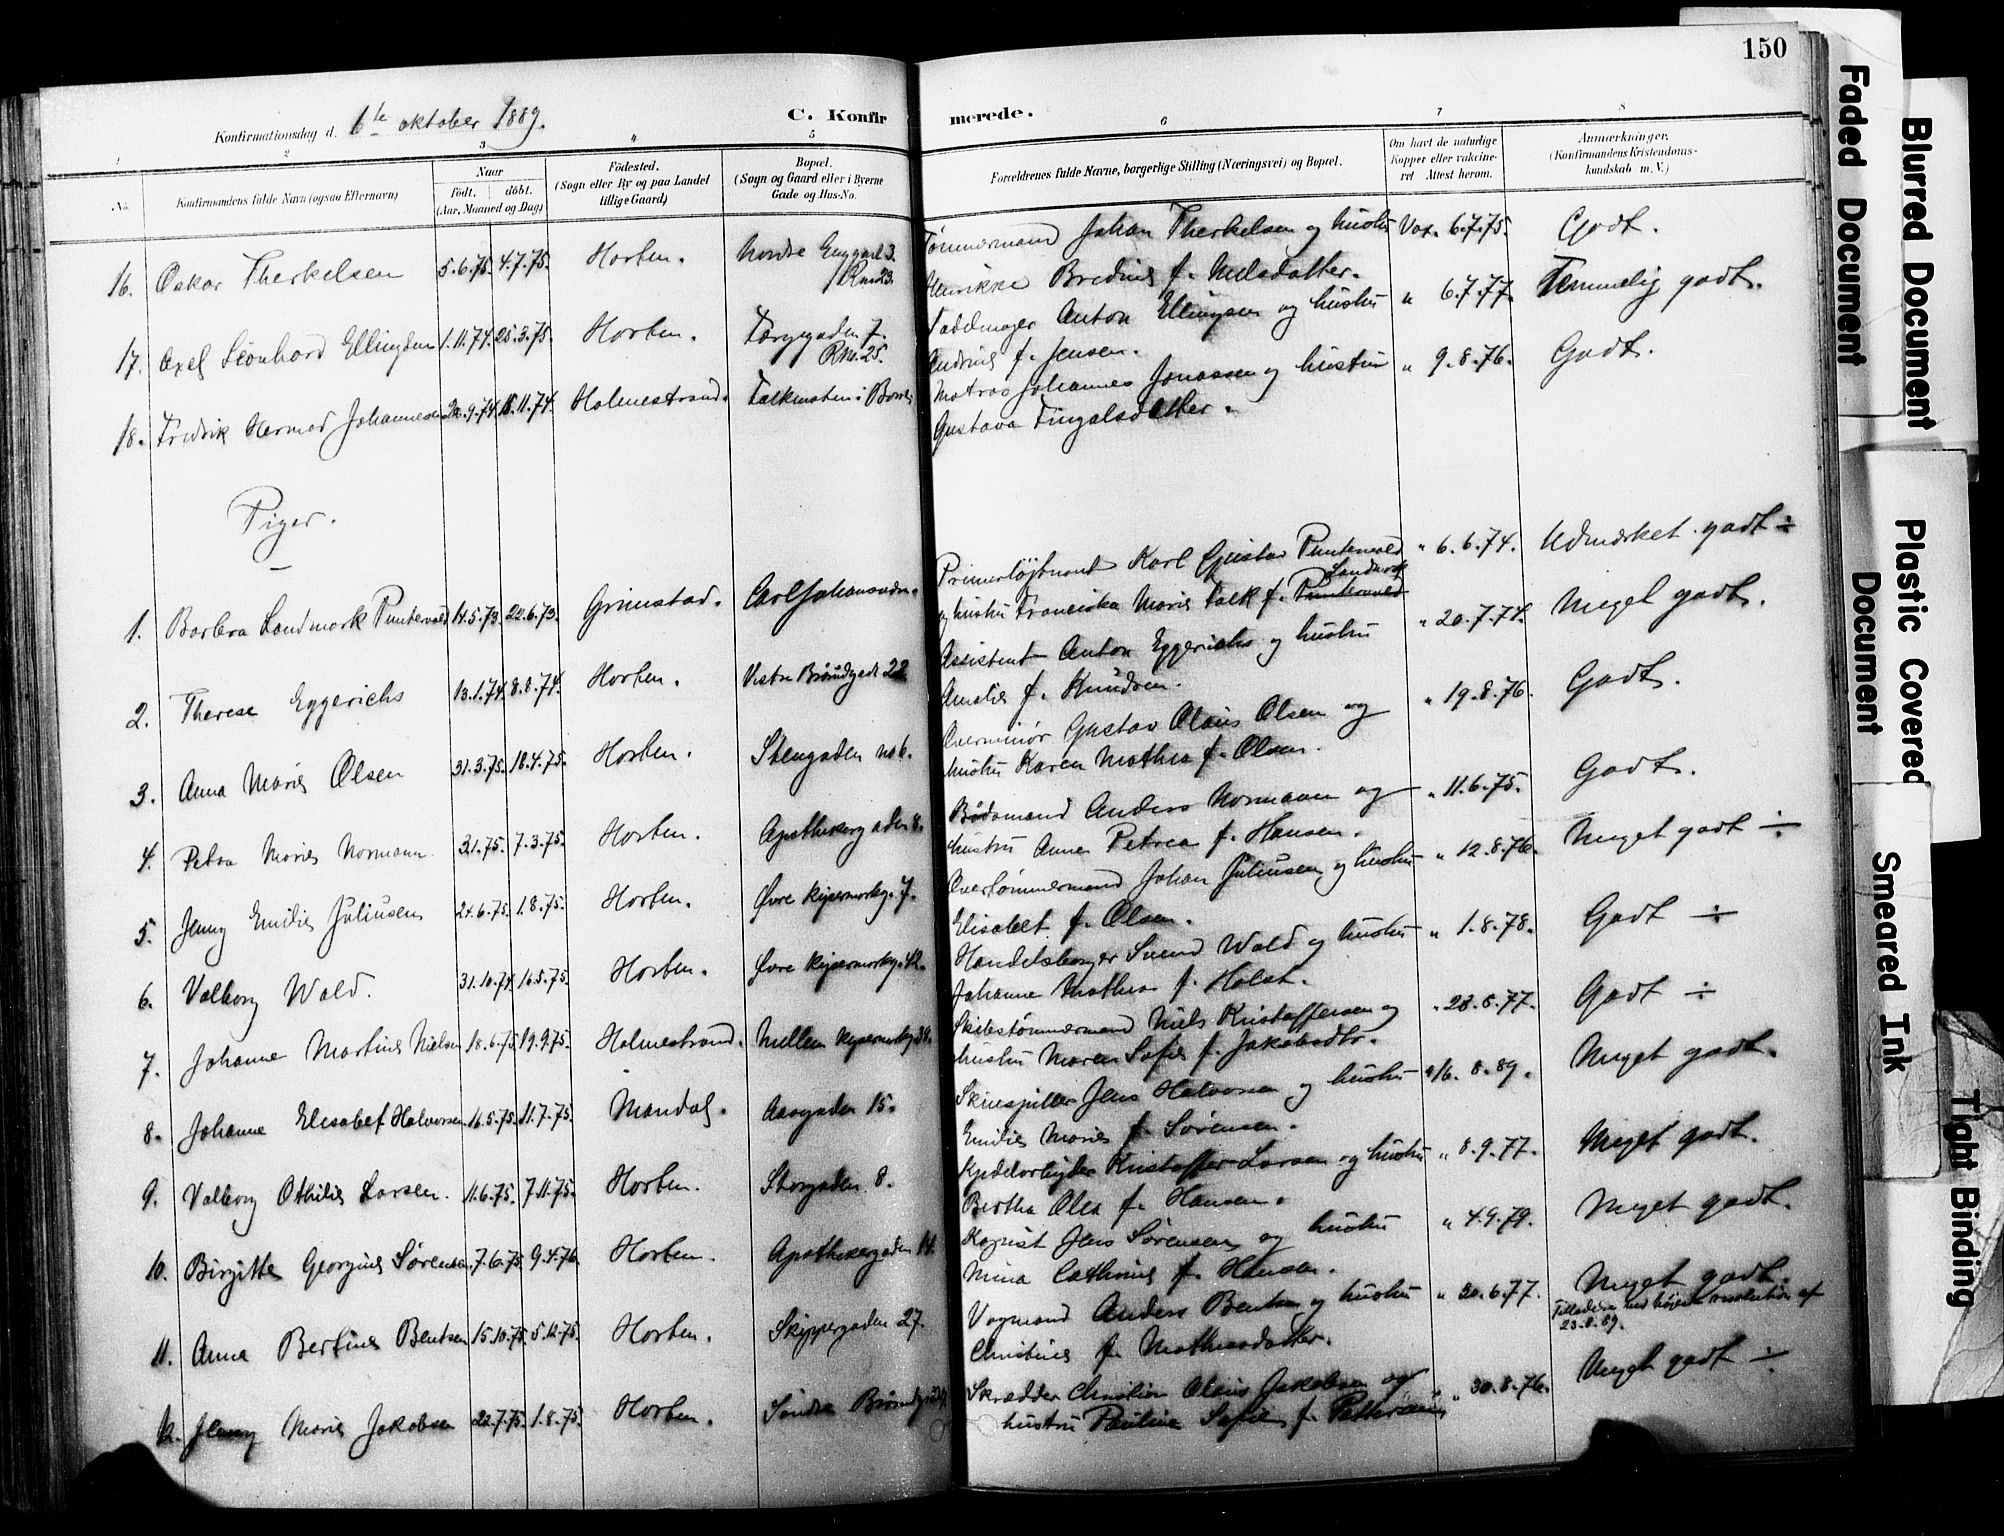 150
Konfirmationsdag d. 6te oktober 1889.
C. Konfirmerede.
1 2 3 4 5 6 7 8
No.
Konfirmandens fulde Navn (ogsaa Efternavn)
Naar
født. døbt.
(Aar, Maaned og Dag)
Fødested.
(Sogn eller By og paa Landet
tillige Gaard)
Bopæl.
(Sogn og Gaard eller i Byerne
Gade og Hus-No.
Forældrenes fulde Navne, borgerlige Stilling (Næringsvei) og Bopæl.
Om havt de naturlige
Kopper eller vakcine-
ret Attest herom.
Anmærkninger.
(Konfirmandens Kristendoms-
kundskab m. V.)
16. Oskar Therkelsen 5.6.75. 4.7.75. Horten. Nordre Enggade 3. Tømmermand Johan Therkelsen og hustru Vax. 6.7.75. Godt.
Rno. 23. Henrikke Bredine f. Nilsdatter.
17. Axel Leonhard Ellingsen 1.11.74. 25.3.75. Horten. Torvegaden 7. Anton Ellingsen og hustru " 6.7.77. Temmelig godt.
Rno. 25. Andrine f. Jensen.
18. Fredrik Hermod Johannesen .9.74. 11.74. Holmestrand. Falkensten i Borre Matros Johannes Jonassen og hustru " 9.8.76. Godt.
Gustava Fingalsdatter.
Piger.
1. Barbra Landmark Puntervold 14.5.73. 22.6.73. Grimstad. Carl Johansværn. Premierløjtnant Karl Gustav Puntervold " 6.6.74. Udmærket godt ÷
Landmark
og hustru Franciska Marie Falk f. Puntervold
2. Therese Eggerichs 13.1.74. 8.8.74. Horten. Vestre Brårudgade 22 Assistent Anton Eggerichs og hustru " 20.7.74. Meget godt.
Amalie f. Knudsen.
3. Anna Marie Olsen 31.3.75. 18.4.75. Horten. Stengaden no 6. Overminør Gustav Olaus Olsen og " 19.8.76. Godt.
hustru Karen Mathea f. Olsen.
4. Petra Marie Normann 3.1.75. 7.3.75. Horten. Apothekergaden 8. Bådsmand Anders Normann og " 11.6.75. Godt.
hustru Anne Petrea f. Hansen.
5. Jenny Emilie Juliusen 24.6.75. 1.8.75. Horten. Øvre Kejsermarkg. 7. Overtømmermand Johan Juliusen og hustru " 12.8.76. Meget godt ÷
Elisabet f. Olsen.
6. Valborg Wold. 31.10.74. 16.5.75. Horten. Øvre Kejsermarkg. 42. Handelsborger Svend Wold og hustru " 1.8.78. Godt ÷
Johanne Mathea f. Holst.
7. Johanne Martine Nielsen 18.6.75. 19.9.75. Holmestrand. Mellem Kejsermarkg. Skibstømmermand Niels Kristoffersen og " 28.8.77. Godt ÷
hustru Maren Sofie f. Jakobsdtr.
8. Johanne Elisabet Halvorsen 16.5.75. 11.7.75. Mandal. Aasgaden 15. Skuespiller Jens Halvorsen og hustru " 16.8.89. Meget godt.
Emilie Marie f. Sørensen.
9. Valborg Othilie Larsen. 11.6.75. 7.11.75. Horten. Storgaden 8. Kjedelarbejder Kristoffer Larsen og hustru " 8.9.77. Meget godt.
Bertha Olea f. Hansen.
10. Birgitte Georgine Sørensen 7.6.75. 9.4.76. Horten. Apothekergaden 14. Kopist Jens Sørensen og hustru " 4.9.79. Meget godt.
Mina Cathrine f. Hansen.
11. Anna Bertine Bentsen 15.10.75. 5.12.75. Horten. Skippergaden 27. Vagmand Anders Bentsen og hustru " 20.6.77. Meget godt.
Christine f. Mathiasdatter. Tilladelse ved høieste resolution af
23.8.89.
12. Jenny Marie Jakobsen 22.7.75. 1.8.75. Horten. Søndre Skrædder Christian Olaus Jakobsen og " 30.8.76. Meget godt ÷
hustru Pauline Sofie f. Pettersen
Faded Document
Blurred Document
Plastic Covered
Document
Smeared Ink
Tight Binding